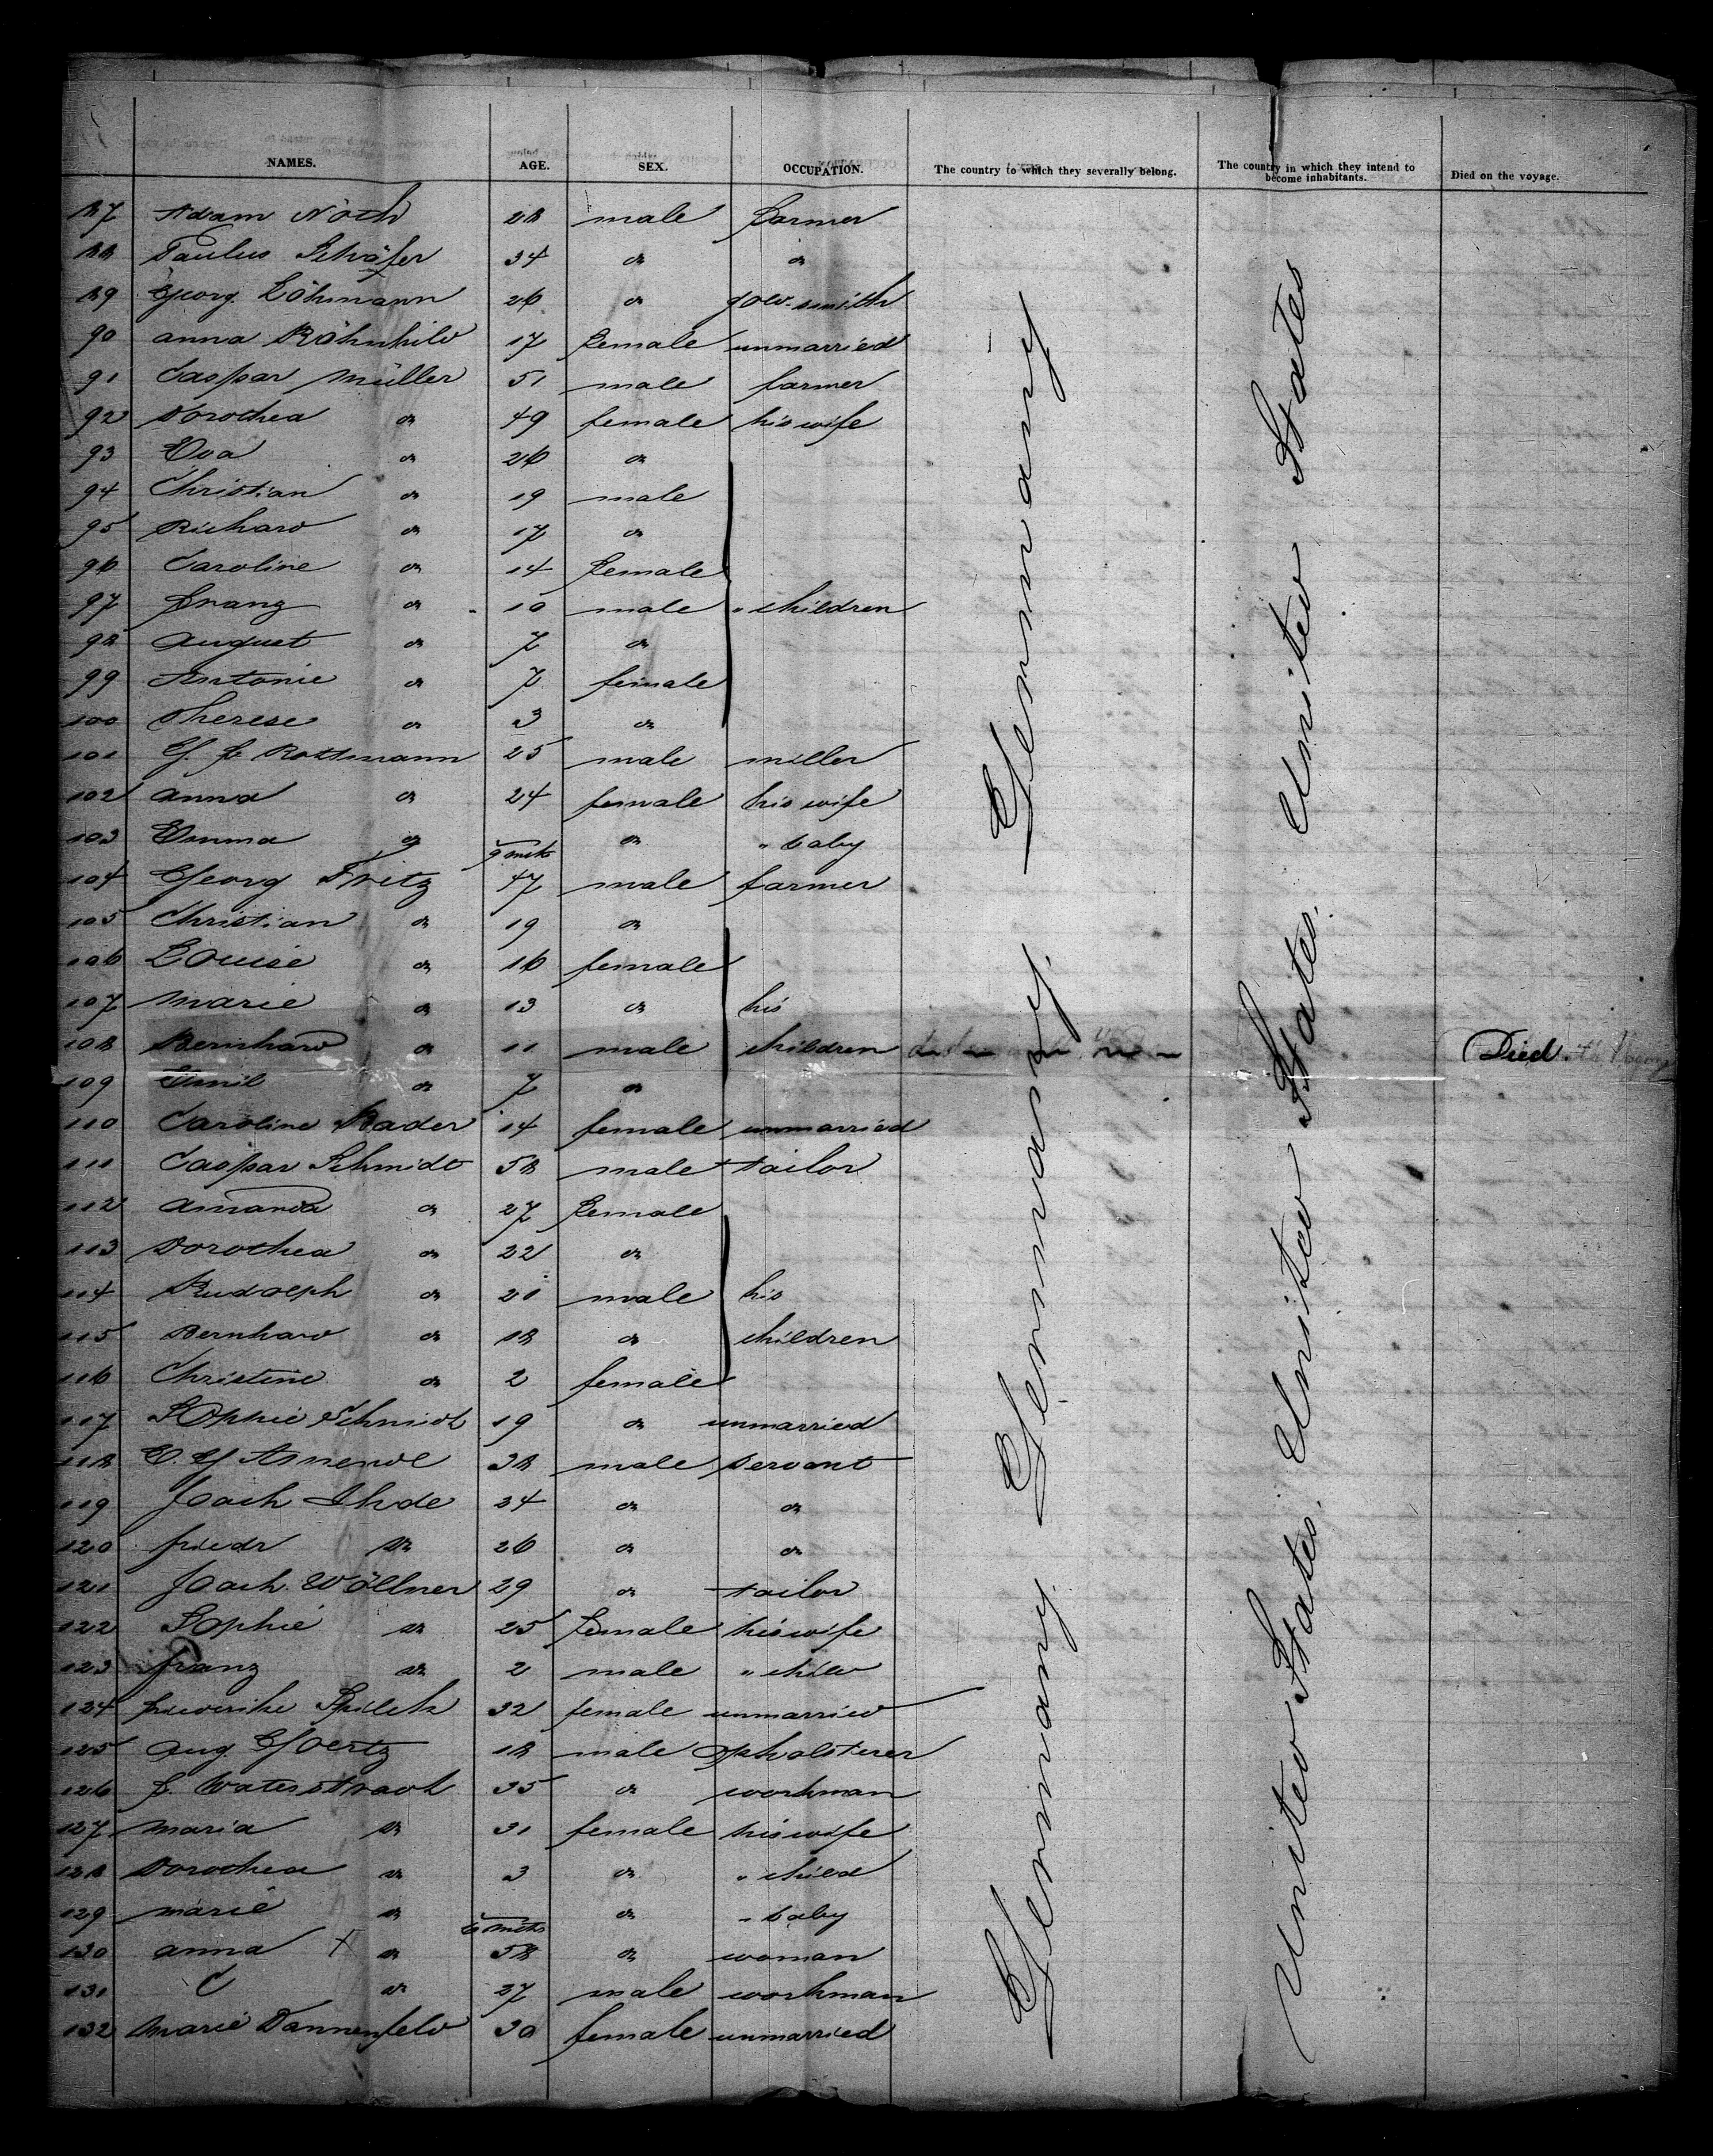 NAMES. AGE. SEX. OCCUPATION. The country to which they severally belong. The country in which they intend to become inhabitants. Died on the voyage.
87 Adam Noth 28 male farmer
88 Paulus Schäfer 34 do do
89 Georg Löhmann 26 do gold-smith
90 Anna Röhnhild 17 female unmarried
91 Caspar Müller 51 male farmer
92 Dorothea do 49 female his wife
93 Eva do 26 do
94 Christian do 19 male
95 Richard do 17 do
96 Caroline do 14 female
97 Franz do 10 male " children
98 August do 7 do
99 Antonie do 7 female
100 Therese do 3 do
101 G. F. Rottmann 25 male miller
102 Anna do 24 female his wife
103 Emma do 9 mth do " baby
104 Georg Fritz 47 male farmer
105 Christian do 19 do
106 Louise do 16 female
107 Marie do 13 do his
108 Bernhard do 11 male children Died
109 Emil do 7 do
110 Caroline Bader 14 female unmarried
111 Caspar Schmidt 58 male tailor
112 Amanda do 27 female
113 Dorothea do 22 do
114 Rudolph do 20 male his
115 Bernhard do 18 do children
116 Christine do 2 female
117 Sophie Schmidt 19 do unmarried
118 C. G. 38 male servant
119 Joach Ihde 24 do do
120 Friedr do 26 do do
121 Joach. Wöllner 29 do tailor
122 Sophie do 25 female his wife
123 Franz do 2 male " child
124 Friederike 32 female unmarried
125 Aug. Goertz 18 male upholsterer
126 F. Waterstradt 35 do workman
127 Maria do 31 female his wife
128 Dorothea do 3 do " child
129 Marie do 6 mths do " baby
130 Anna do 58 do woman
131 C do 27 male workman
132 Marie Dannenfeld 30 female unmarried
Germany Germany. Germany. Germany
United States. United States. United States